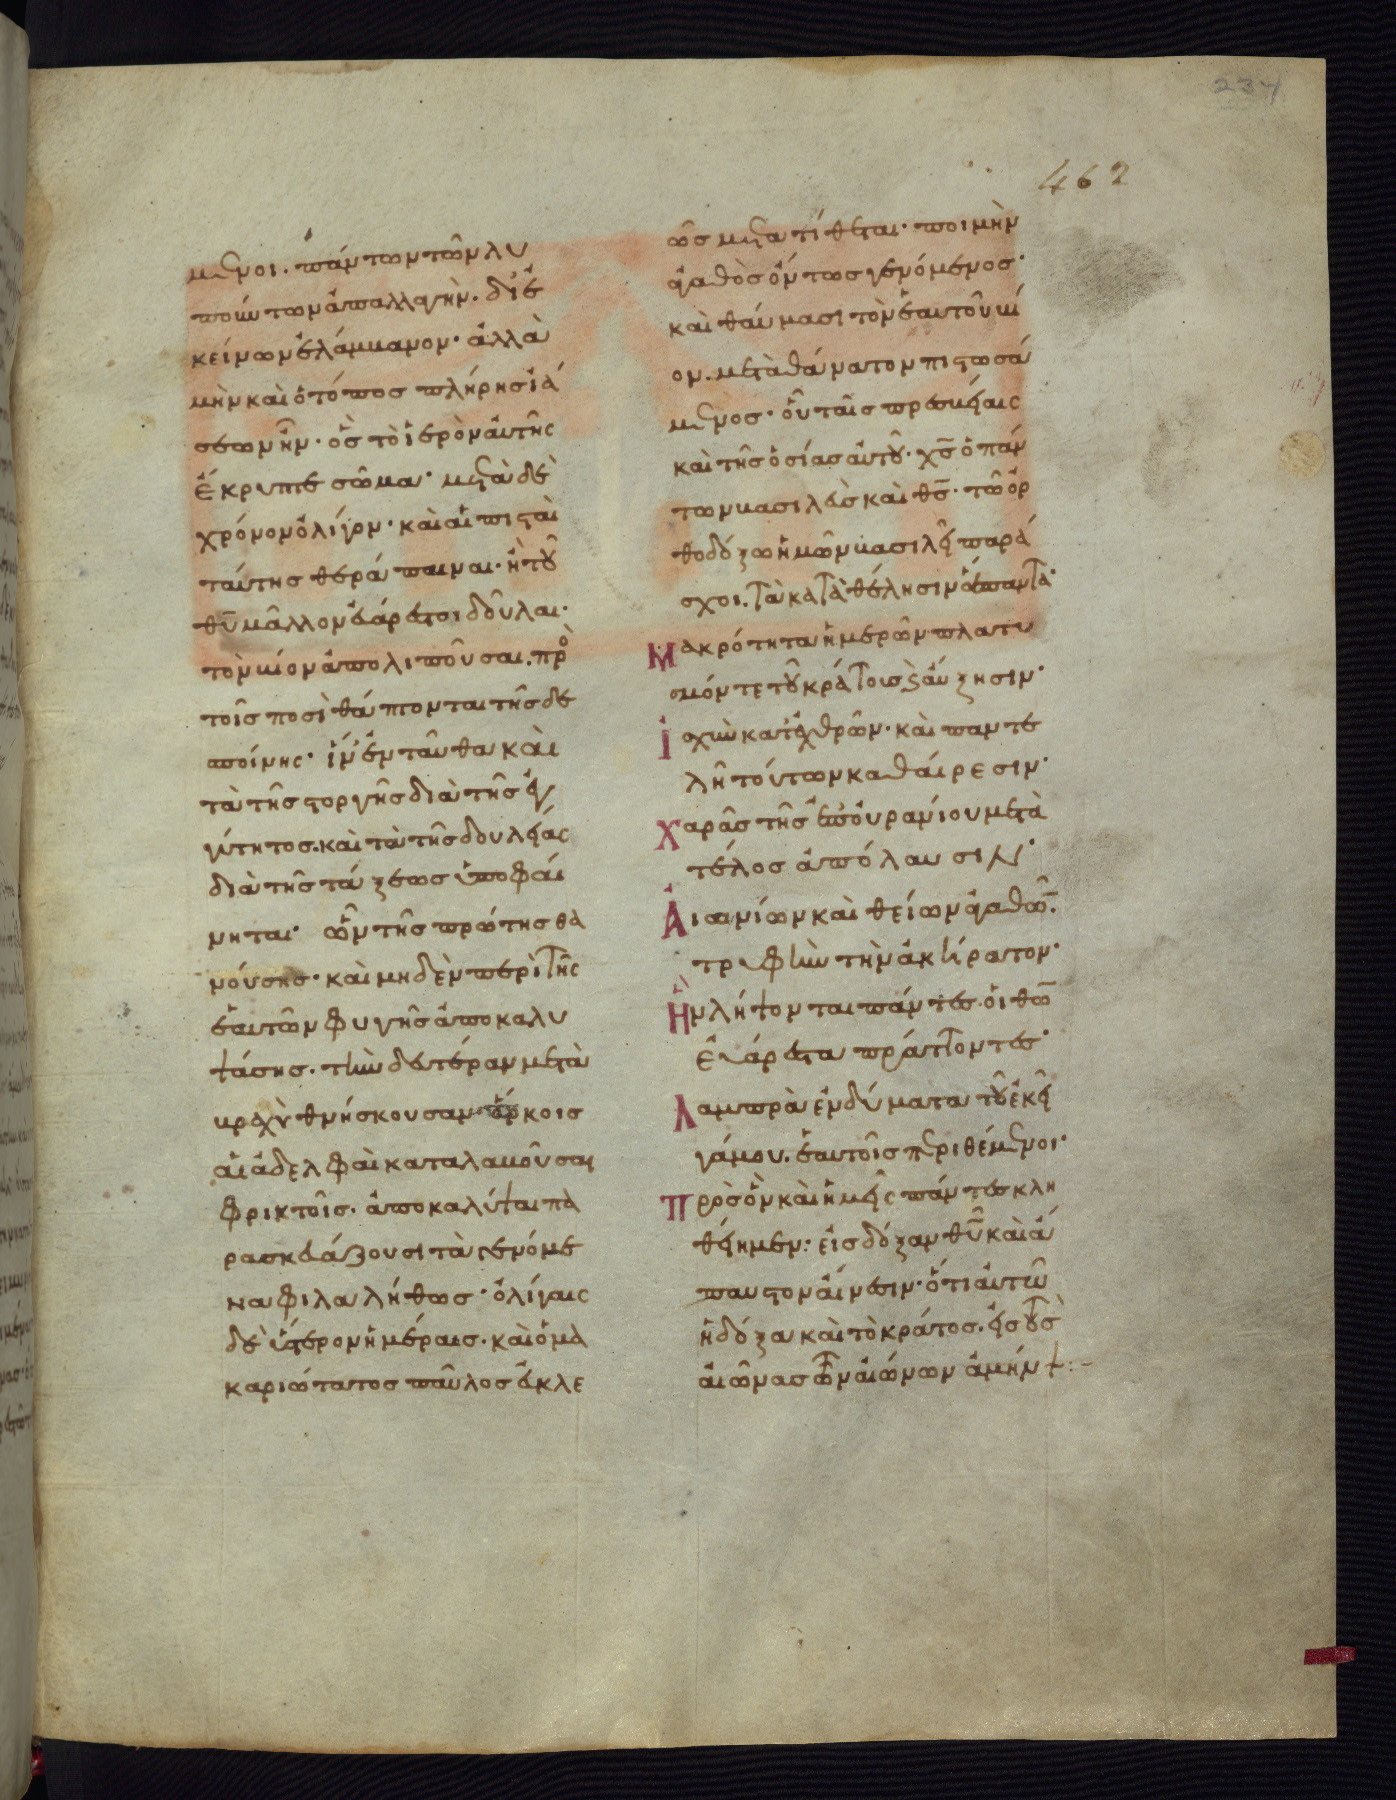 234
462
μενοι. πάντων τῶν λυ
πούντων ἀπαλλαγὴν. δι' ἐ
κείνων ἐλάμβανον· ἀλλὰ
μὴν καὶ ὁ τόπος πλήρης ἰά
σεων ἦν· ὃς τὸ ἱερὸν αὐτῆς
ἔκρυπτε σῶμα· μετὰ δὲ
χρόνον ὀλίγον· καὶ αἱ πισταὶ
ταύτης θεράπαιναι· ἢ τοῦ
θυ μᾶλλον εὐάρεστοι δοῦλαι·
τὸν βίον ἀπολιποῦσαι. πρὸ
τοῖς ποσὶ θάπτονται τῆς δε
σποίνης· ἵν' ἐνταῦθα καὶ
τὰ τῆς στοργῆς διὰ τῆς ἐγ
γύτητος. καὶ τὰ τῆς δουλείας
διὰ τῆς τάξεως ὑποφαί
νηται· ὧν τῆς πρώτης θα
νούσης· καὶ μηδὲν περὶ τῆς
ἑαυτῶν φυγῆς ἀποκαλυ
ψάσης. τὴν δευτέραν μετὰ
βραχὺ θνήσκουσαν ὅρκοις
αἱ ἀδελφαὶ καταλαβοῦσαι
φρικτοῖς. ἀποκαλύψαι πα
ρασκευάζουσι τὰ γενόμε
να φιλαλήθως· ὀλίγαις
δὲ ὕστερον ἡμέραις. καὶ ὁ μα
καριώτατος παῦλος εὐκλε
ῶς μετατίθεται· ποιμὴν
ἀγαθὸς ὄντως γενόμενος·
καὶ θαύμασι τὸν ἑαυτοῦ βί
ον. μετὰ θάνατον πιστωσά
μενος· οὗ ταῖς πρεσβείαις
καὶ τῆς ὁσίας αὐτοῦ· χς ὁ πάν
των βασιλεὺς καὶ θς· τῷ ὀρ
θοδόξῳ ἡμῶν βασιλεῖ παρά
σχοι. τὰ κατὰ θέλησιν ἅπαντα·
Μακρότητα ἡμερῶν πλατυ
σμόν τε τοῦ κράτους ϗ αὔξησιν·
Ἰσχὺν κατ' ἐχθρῶν· καὶ παντε
λῆ τούτων καθαίρεσιν·
Χαρᾶς τῆς ἐπουρανίου μετὰ
τέλος ἀπόλαυσιν·
Αἰωνίων καὶ θείων ἀγαθῶν.
τρυφὴν τὴν ἀκήρατον·
Ἣν λήψονται πάντες. οἱ θω
εὐάρεστα πράττοντες·
Λαμπρὰ ἐνδύματα τοῦ ἐκεῖ
γάμου. ἑαυτοῖς περιθέμενοι·
Πρὸς ὃν καὶ ἡμεῖς πάντες κλη
θείημεν: εἰς δόξαν θυ καὶ ἄ
παυστον αἴνεσιν· ὅτι αὐτῶ
ἡ δόξα καὶ τὸ κράτος. εἰς τοὺς
αἰῶνας τῶν αἰώνων ἀμήν +:-